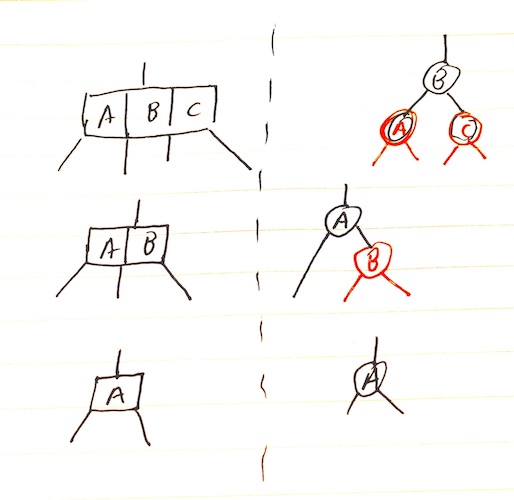 A B C
B
A C
A B
A
B
A
A